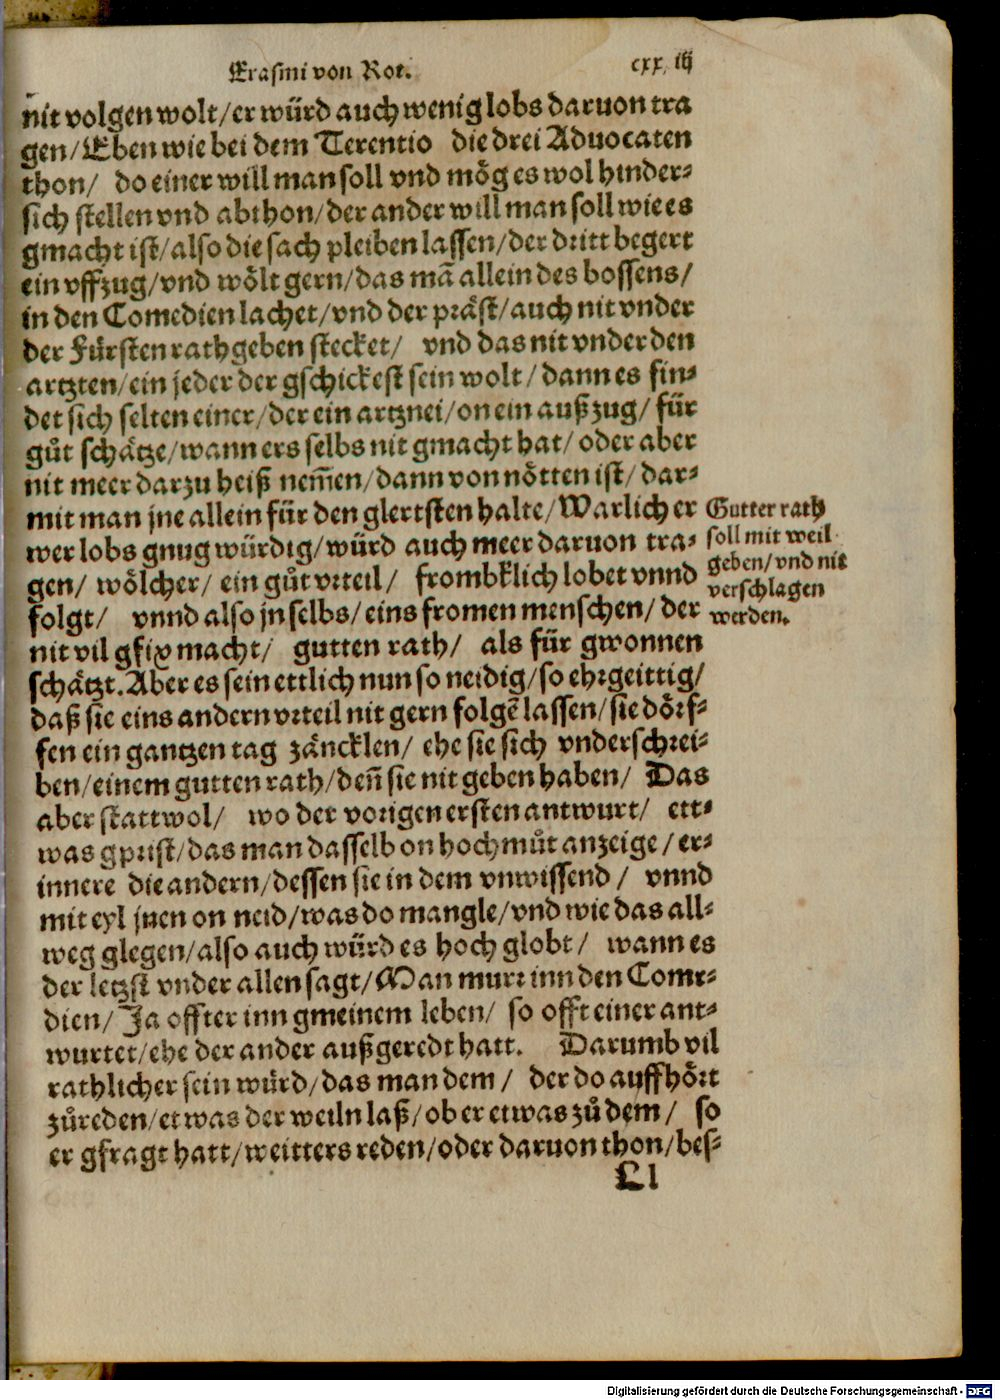 Erasmi von Rot.
cxx, iij
nit volgen wolt/er würd auch wenig lobs daruon tra
gen/Eben wie bei dem Terentio die drei Aduocaten
thon/ do einer will man soll vnd mög es wol hinder⸗
sich stellen vnd abthon/der ander will man soll wie es
gmacht ist/also die sach pleiben lassen/der dritt begert
ein vffzug/vnd wölt gern/das mã allein des bossens/
in den Comedien lachet/vnd der präst/auch nit vnder
der Fürsten rathgeben stecket/ vnd das nit vnder den
artzten/ein jeder der gschickest sein wolt/dann es fin⸗
det sich selten einer/der ein artznei/on ein außzug/für
gůt schätze/wann ers selbs nit gmacht hat/oder aber
nit meer darzu heiß nem̃en/dann von nötten ist/dar⸗
mit man jne allein für den glertsten halte/Warlich er
wer lobs gnug würdig/würd auch meer daruon tra⸗
gen/ wölcher/ ein gůt vrteil/ frombklich lobet vnnd
folgt/ vnnd also jn selbs/eins fromen menschen/der
nit vil gfix macht/ gutten rath/ als für gwonnen
schätzt.Aber es sein ettlich nun so neidig/so ehrgeittig/
daß sie eins andern vrteil nit gern folgẽ lassen/sie dörf⸗
fen ein gantzen tag zäncklen/ ehe sie sich vnderschrei⸗
ben/einem gutten rath/deñ sie nit geben haben/ Das
aber statt wol/ wo der vorigen ersten antwurt/ ett⸗
was gprist/das man dasselb on hochmůt anzeige/er⸗
innere die andern/dessen sie in dem vnwissend/ vnnd
mit eyl jnen on neid/was do mangle/vnd wie das all⸗
weg glegen/also auch würd es hoch globt/ wann es
der letzst vnder allen sagt/Man murr inn den Come⸗
dien/Ja offter inn gmeinem leben/ so offt einer ant⸗
wurtet/ehe der ander außgeredt hatt. Darumb vil
rathlicher sein würd/das man dem/ der do auffhört
zůreden/etwas der weiln laß/ob er etwas zů dem/ so
er gfragt hatt/weitters reden/oder daruon thon/bes⸗
Ll
Gutter rath
soll mit weil
geben/vnd nit
verschlagen
werden.
Digitalisierung gefördert durch die Deutsche Forschungsgemeinschaft - DFG